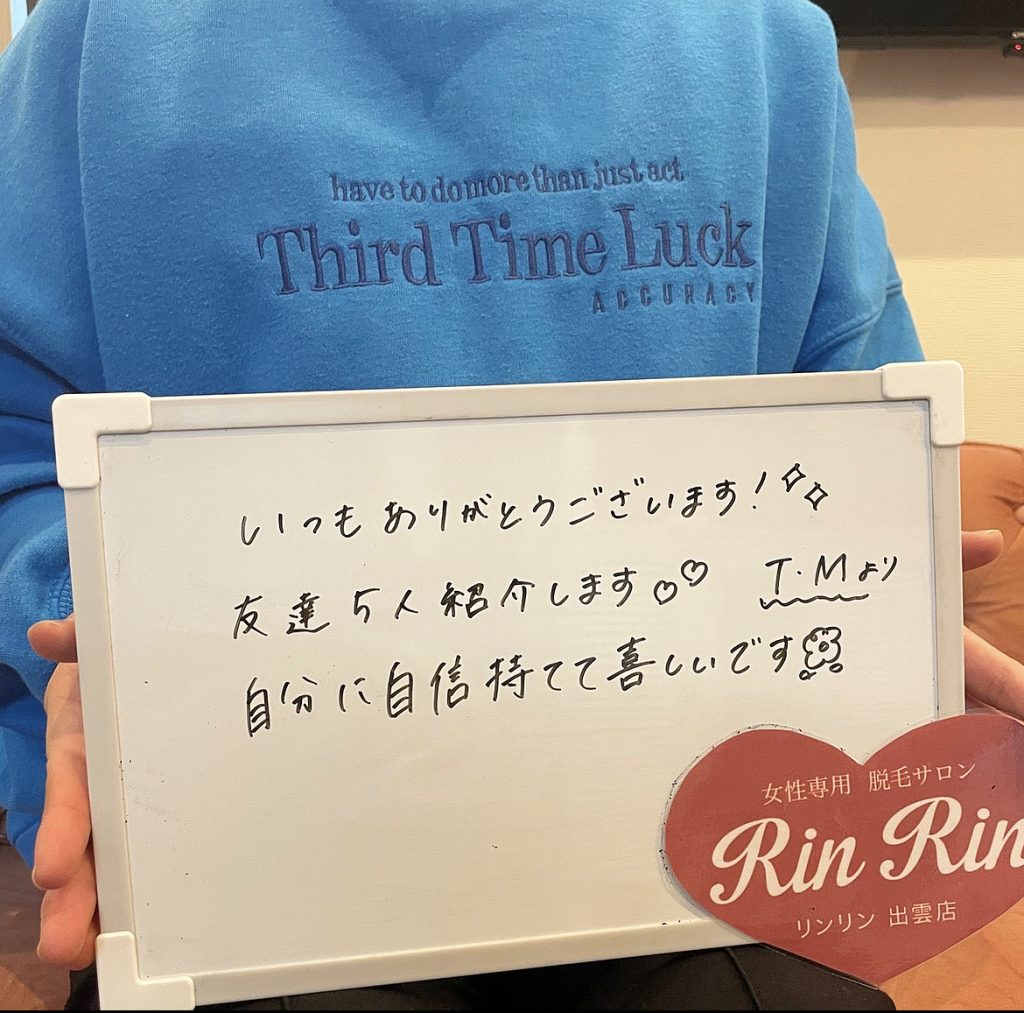 have to do more than just act
Third Time Luck
ACCURACY
いつもありがとうございます!
友達5人紹介します♡♡ T.Mより
自分に自信持てて喜しいです
女性専用 脱毛サロン
Rin Rin
リンリン 出雲店